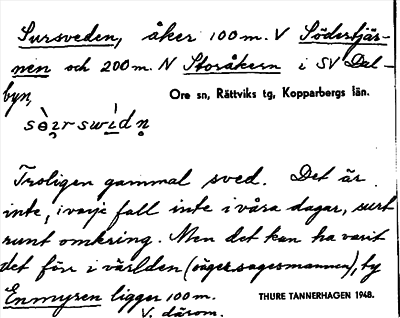 Sursveden, åker 100 m. V Södertjär-
nen och 200 m. N Storåkern i SV Dal-
byn,
Ore sn, Rättviks tg, Kopparbergs län.
Troligen gammal sved. Det är
inte, i varje fall inte i våra dagar, surt
runt omkring. Men det kan ha varit
det förr i världen (säger sagesmannen), ty
Enmyren ligger 100 m.
V. därom.
THURE TANNERHAGEN 1948.